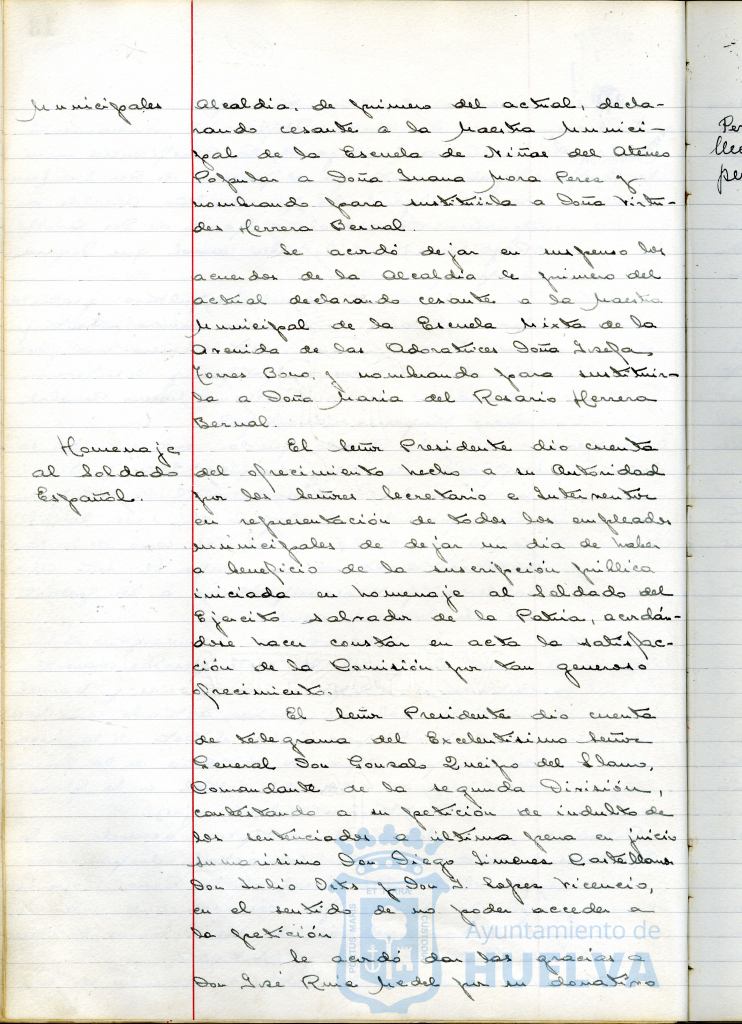 Municipales
Alcaldia, de primero del actual, decla-
rando cesante a la Maestra Munici-
pal de la Escuela de Niñas del Ateneo
Popular a Doña Juana Mora Perea y
nombrando para sustituirla a Doña Virtu-
des Herrera Bernal.
Se acordó dejar en suspenso los
acuerdos de la Alcaldia de primero del
actual declarando cesante a la Maestra
Municipal de la Escuela Mixta de la
Avenida de las Adoratrices Doña Josefa
Torres Bono, y nombrando para sustituir-
la a Doña Maria del Rosario Herrera
Bernal.
Homenaje
al Soldado
Español.
El Señor Presidente dio cuenta
del ofrecimiento hecho a su Autoridad
por los Señores Secretario e Interventor
en representación de todos los empleados
municipales de dejar un dia de haber
a beneficio de la suscripción pública
iniciada en homenaje al Soldado del
Ejercito salvador de la Patria, acordán-
dose hacer constar en acta la satisfac-
ción de la Comisión por tan generoso
ofrecimiento.
El Señor Presidente dio cuenta
de telegrama del Excelentísimo Señor
General Don Gonzalo Queipo del Llano,
Comandante de la segunda División,
contestando a su petición de indulto de
los sentenciados a última pena en juicio
sumarísimo Don Diego Jimenez Castellano
Don Julio Orts y Don J. Lopez Vicencio,
en el sentido de no poder acceder a
la petición
Se acordó dar las gracias a
Don José Ruiz Medel por su donativo
Ayuntamiento de
HUELVA
PORTUS MARIS
ET TERRA
CUSTODIA